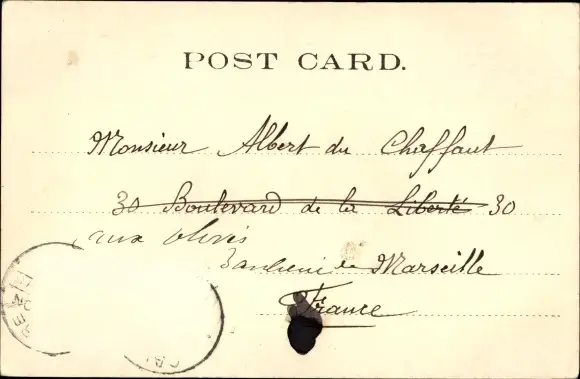 POST CARD.
Monsieur Albert du Chaffaut
30 Boulevard de la Liberté 30
aux olives
Banlieue de Marseille
France